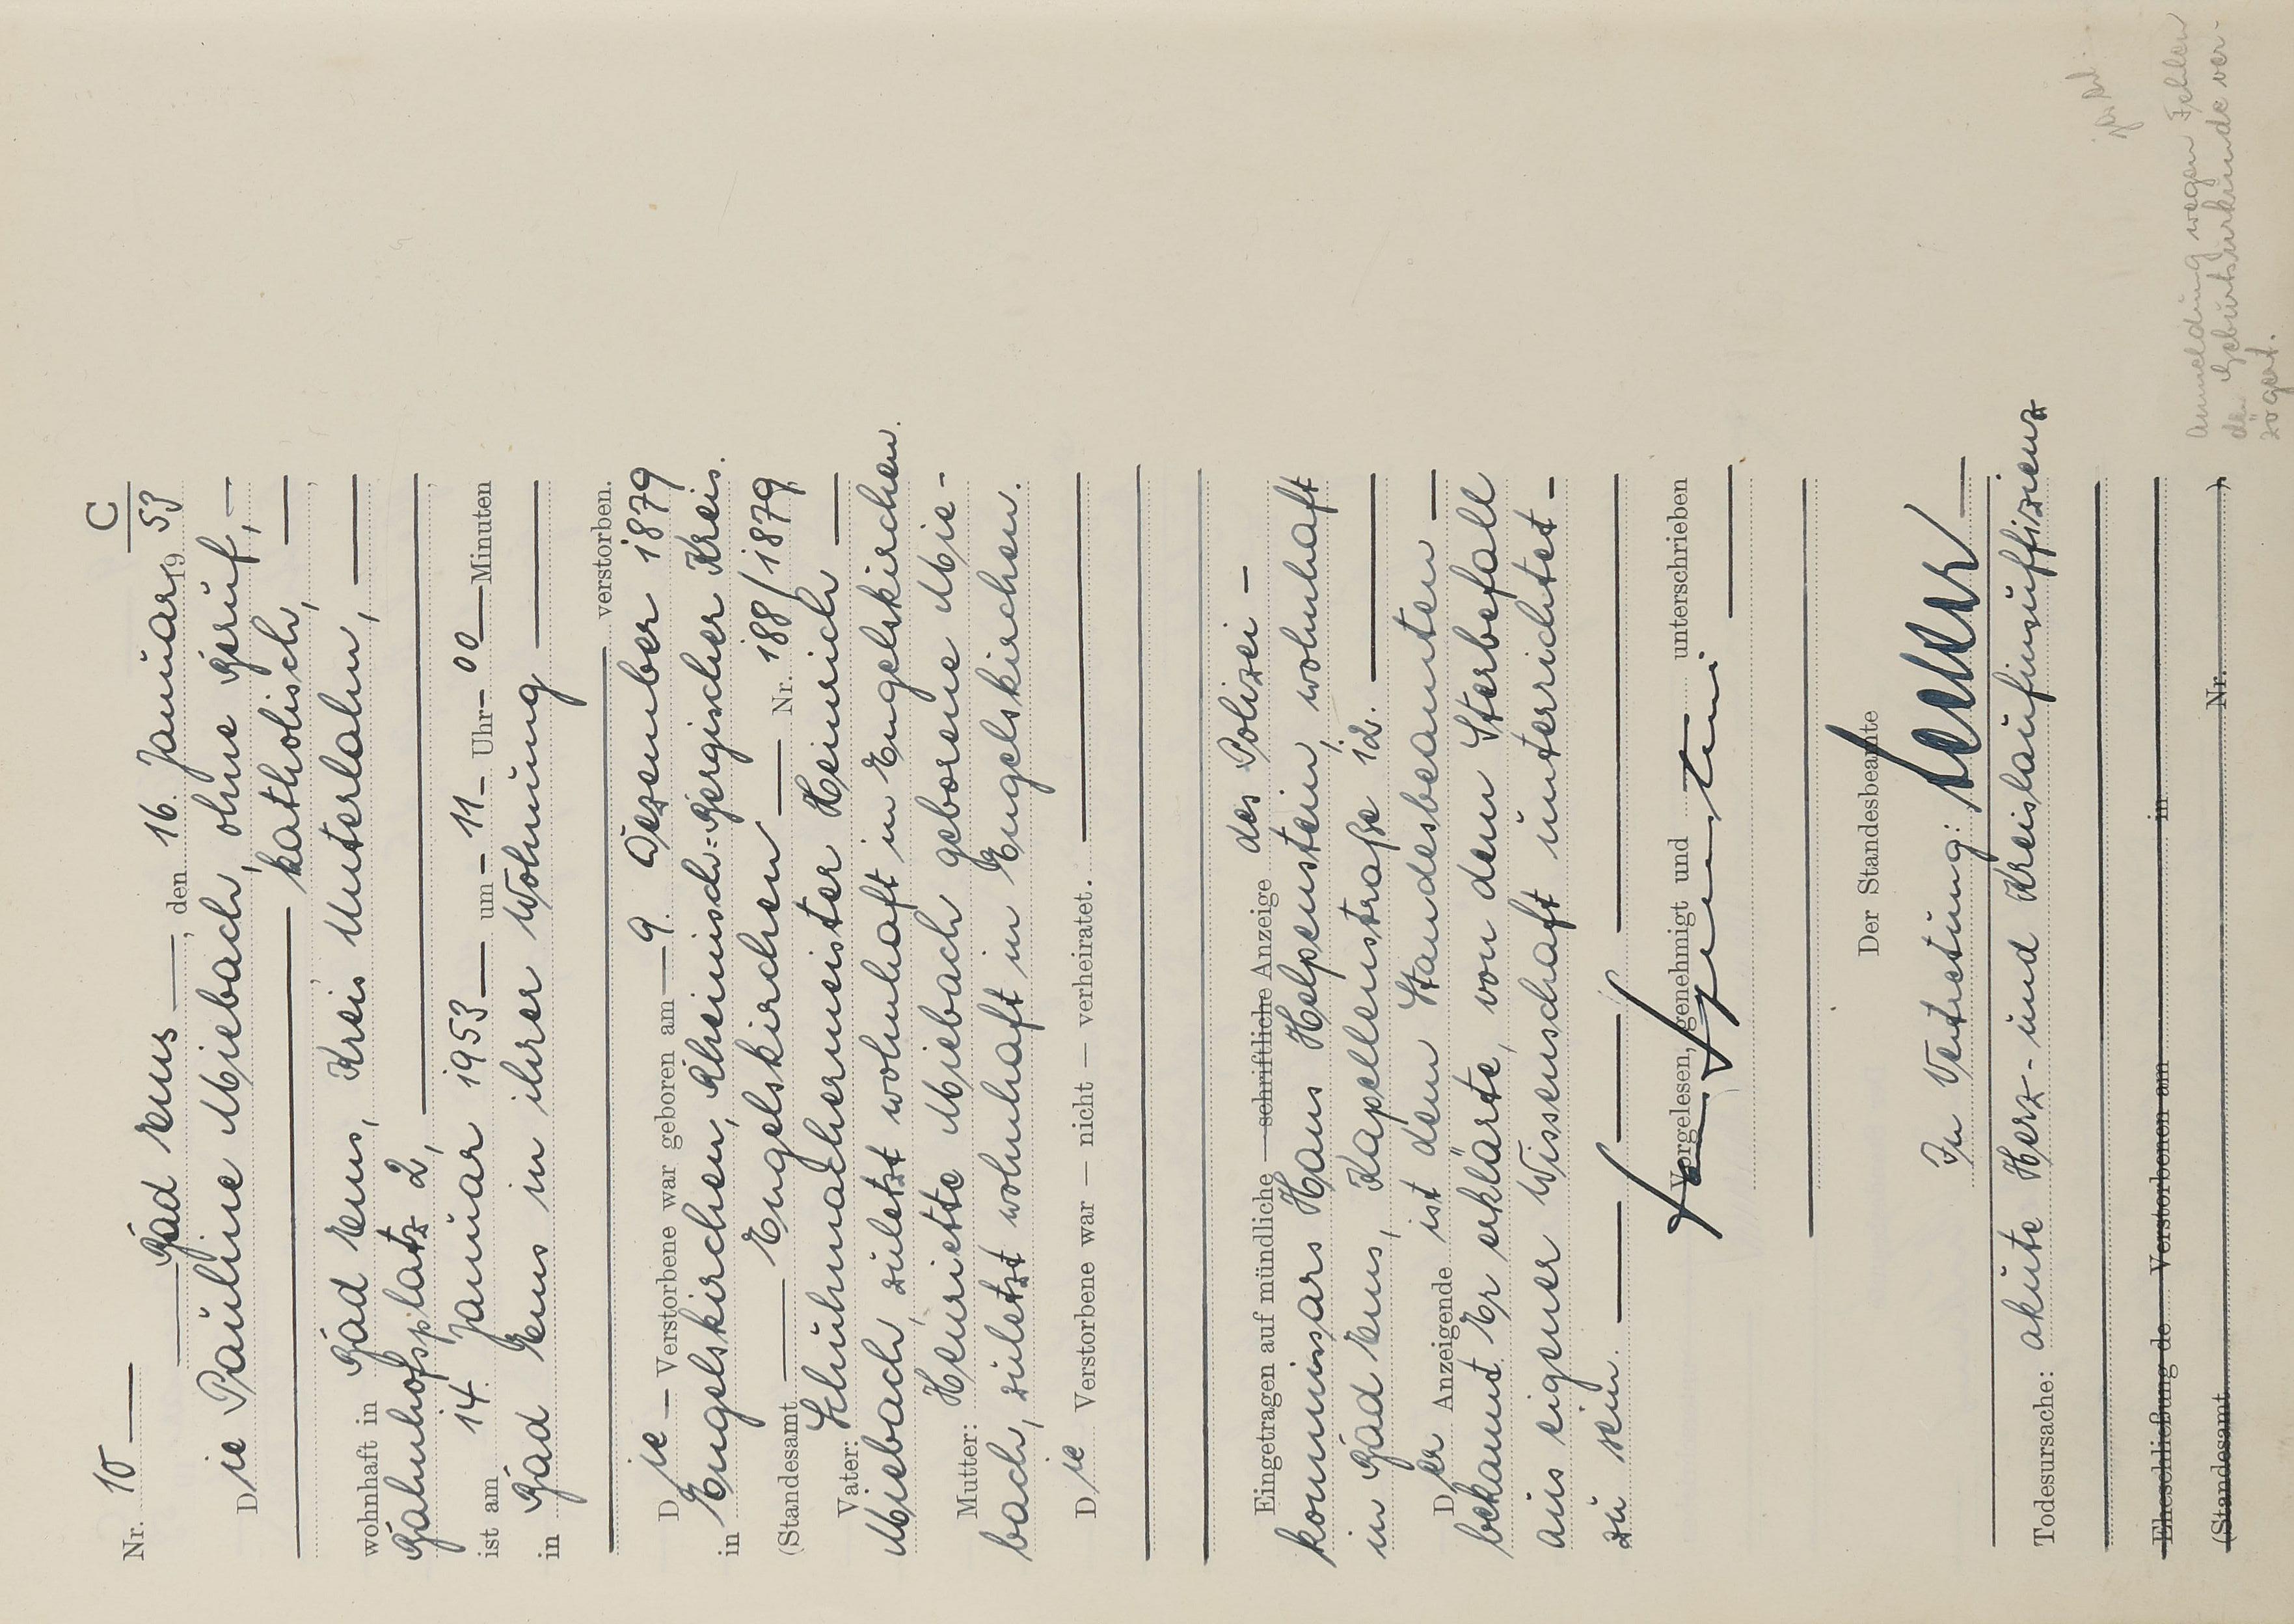 C
Nr. 10
Bad Ems, den 16. Januar 1953
Die Pauline Miebach, ohne Beruf,
katholisch,
wohnhaft in Bad Ems, Kreis Unterlahn,
Bahnhofsplatz 2,
ist am 14. Januar 1953 um - 11 - Uhr - 00 Minuten
in Bad Ems in ihrer Wohnung
verstorben.
Die Verstorbene war geboren am 9. Dezember 1879
in Engelskirchen, Rheinisch=Bergischer Kreis.
(Standesamt Engelskirchen Nr. 188/1879)
Vater: Schuhmachermeister Heinrich
Miebach, zuletzt wohnhaft in Engelskirchen.
Mutter: Henriette Miebach geborene Mie-
bach, zuletzt wohnhaft in Engelskirchen.
Die Verstorbene war — nicht — verheiratet.
Eingetragen auf mündliche — schriftliche Anzeige des Polizei-
kommissars Hans Helpenstein, wohnhaft
in Bad Ems, Kapellenstraße 12.
Der Anzeigende ist dem Standesbeamten
bekannt. Er erklärte, von dem Sterbefall
aus eigener Wissenschaft unterrichtet
zu sein.
Vorgelesen, genehmigt und unterschrieben
Der Standesbeamte
In Vertretung:
Todesursache: akute Herz- und Kreislaufinsuffizienz
Eheschließung de Verstorbenen am in
(Standesamt Nr. )
Anmeldung wegen Fehlen
der Geburtsurkunde ver-
zögert.